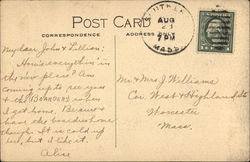 POST CARD
CORRESPONDENCE
ADDRESS
AUG
23
7 PM
MASS.
My dear John & Lillian:
How's everythin' in
the new place? Am
coming up to see you
& the BOARDERS when
I get home.
has the
though. It is cold up
here, but I like it.
Alice
Mr. & Mrs. J Williams
Cor. West & Highland Sts
Worcester
Mass.